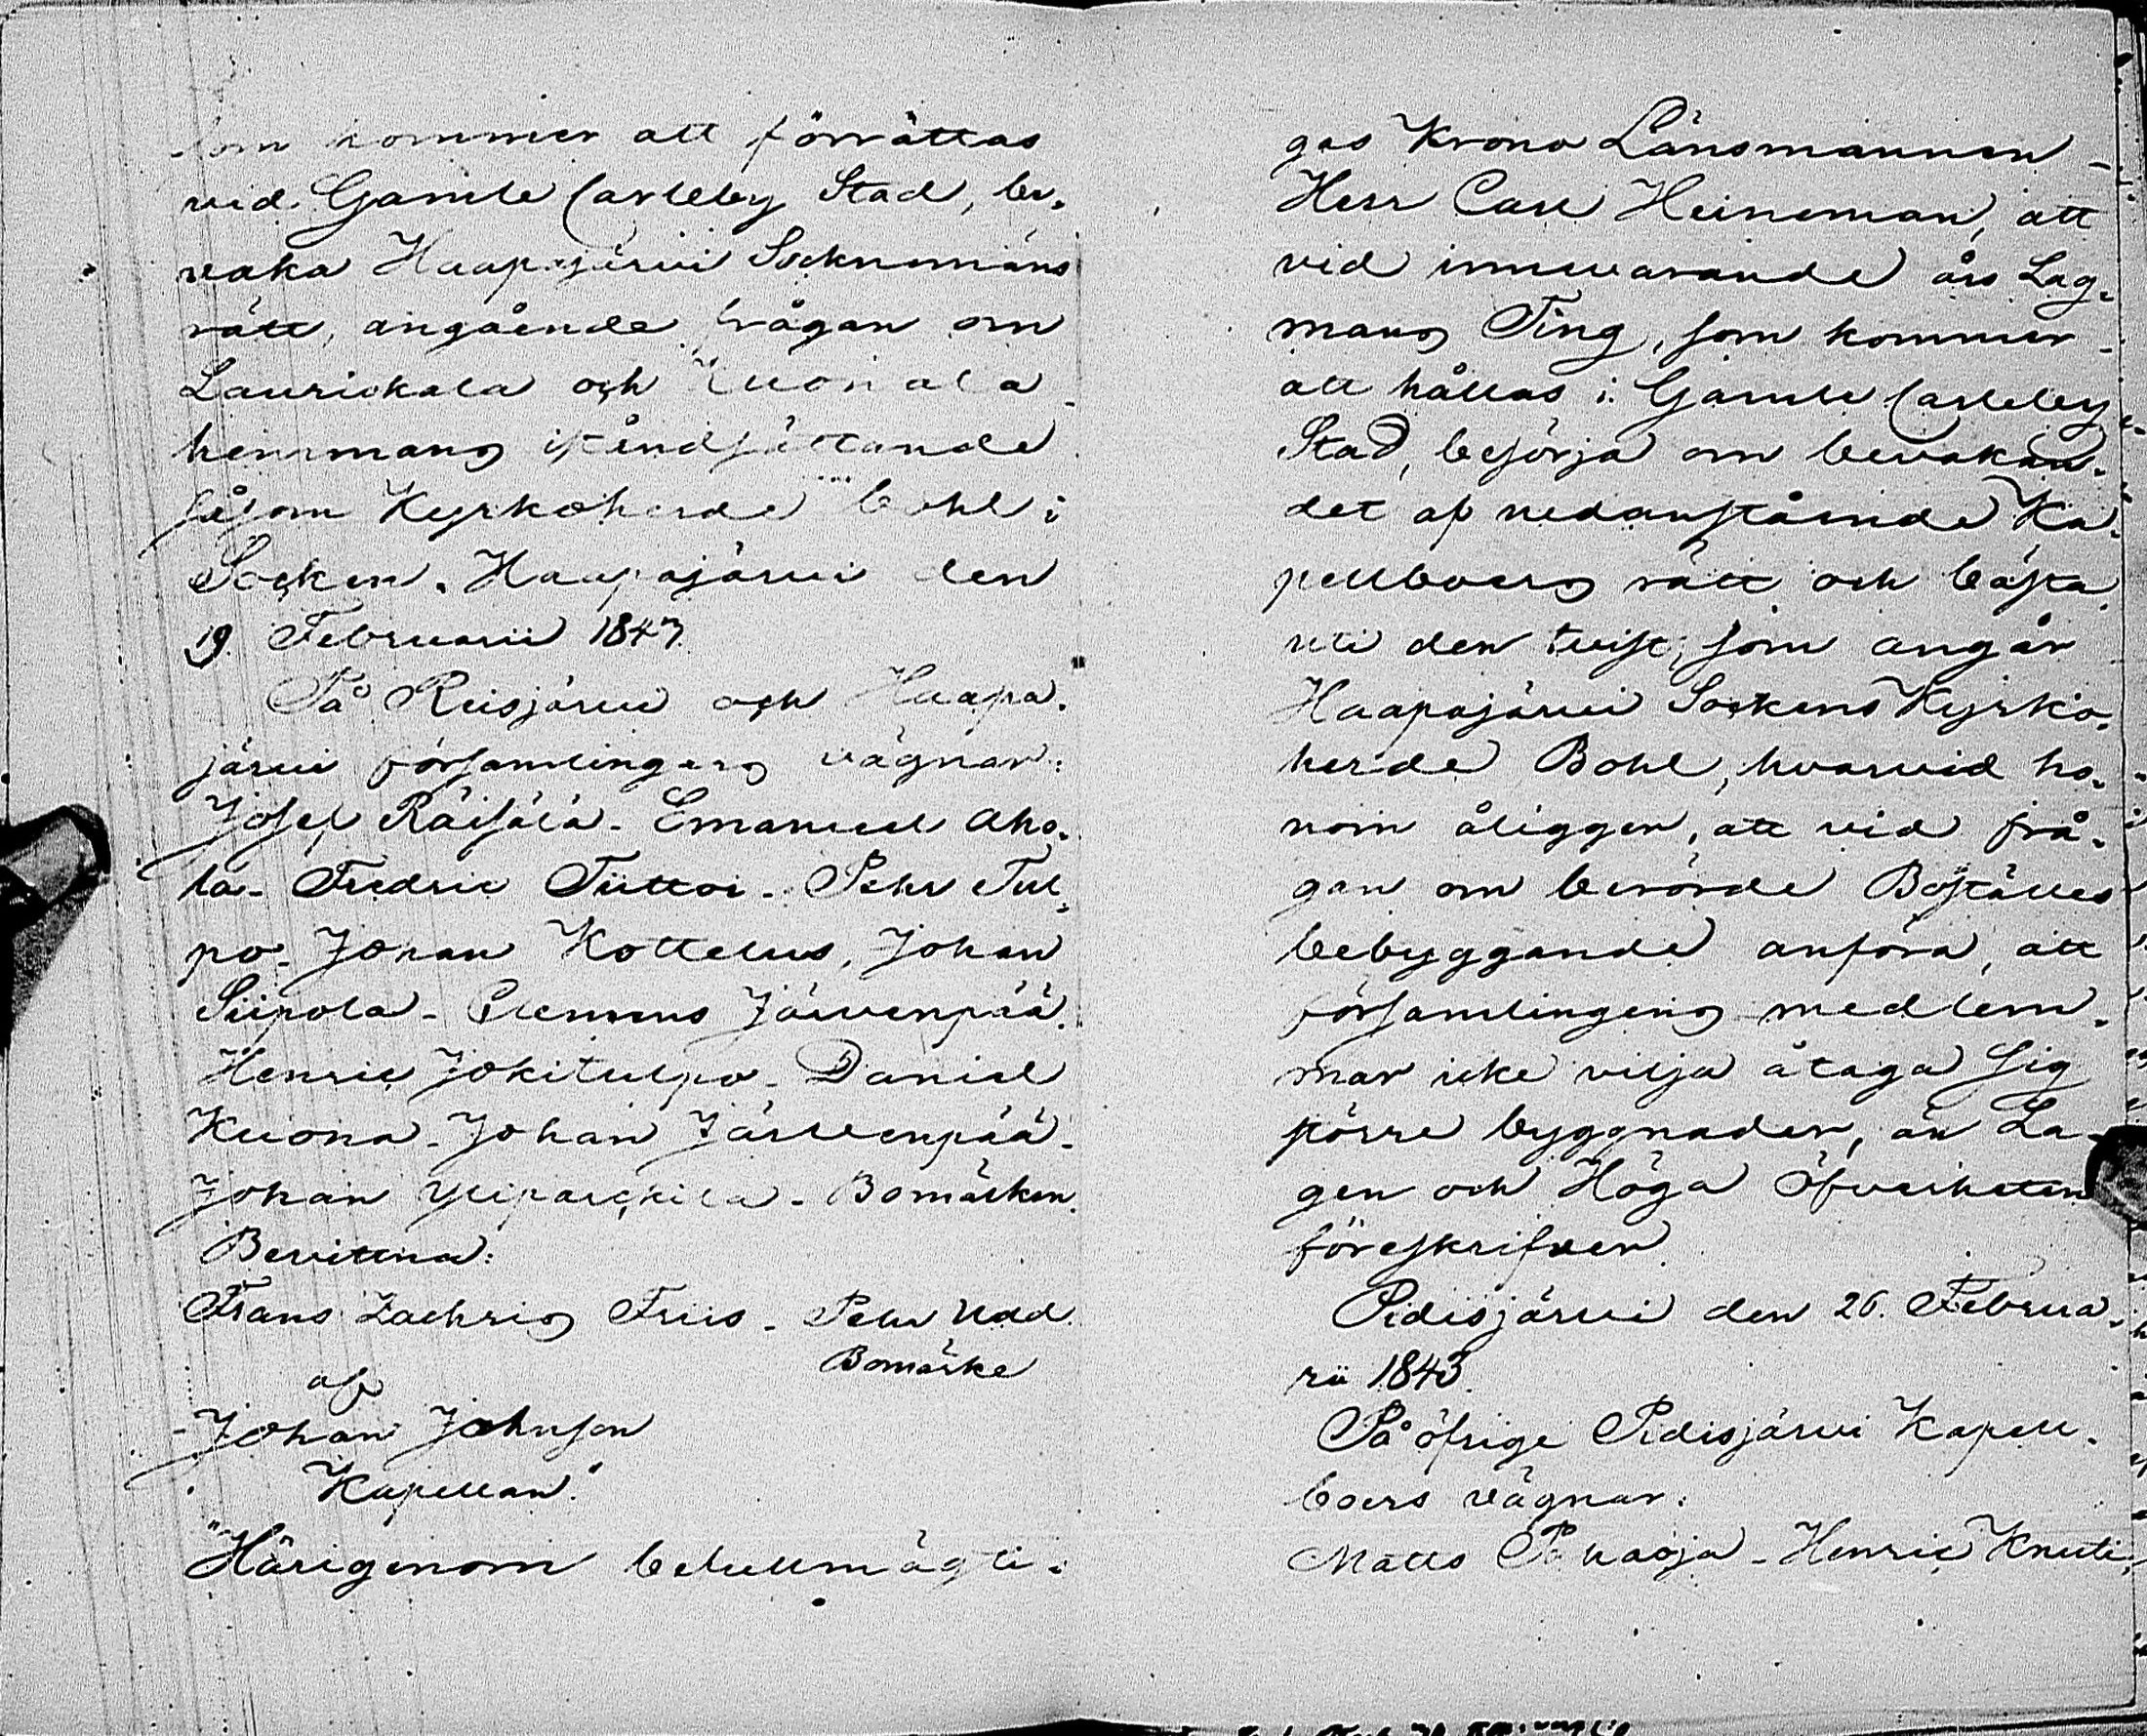 som kommer att förrättas
vid Gamle Carleby Stad, be-
vaka Haapajärvi Socknemäns
rätt, angående frågan om
Laurickala och Kuonala
hemmans iståndsättande
såsom Kyrkoherde Bohl i
Socken. Haapajärvi den
19 Februarii 1843.
På Reisjärvi och Haapa-
järvi församlingars vägnar:
Josef Räisälä - Emanuel Aho-
la - Fredric Tiittoi - Pehr Tul-
po - Johan Kottelus, Johan
Siipola - Clemens Järvenpää
Henric Jokitulpo - Daniel
Kuona - Johan Järvenpää -
Johan - Bomärken.
Bevittna:
Frans Zachris Friis - Pehr Udd
Bomärke
af
Johan Johnson
Kapellan."
"Härigenom befullmägti-
gas Krono Länsmannen
Herr Carl Heineman, att
vid innevarande års Lag-
mans Ting, som kommer
att hållas i Gamle Carleby
Stad, besörja om bevakan-
det af nedanstående Ka-
pellboers rätt och bästa
uti den tvist, som angår
Haapajärvi Sockens Kyrko-
herde Bohl, hvarvid ho-
nom åligger, att vid frå-
gan om berörde Boställes
bebyggande anföra, att
församlingens medlem-
mar icke vilja åtaga sig
större byggnader, än La-
gen och Höga Öfverheten
föreskrifver.
Pidisjärvi den 26. Februa-
rii 1843.
På öfrige Pidisjärvi Kapell-
boers vägnar:
Matts Pahaoja - Henric Knuti,